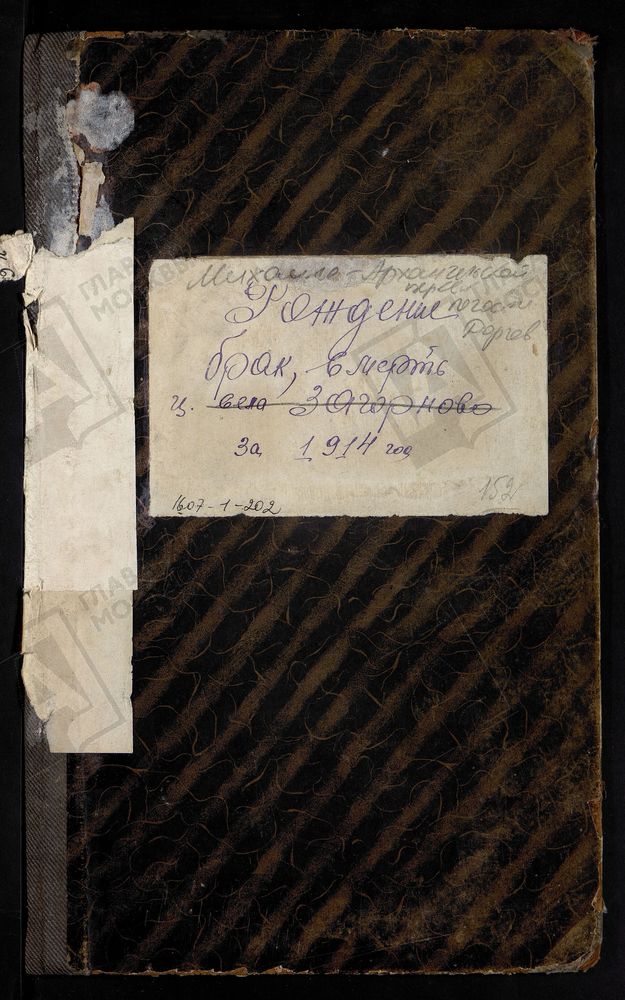 Михаило-Архангельской
церкви
Рождение погоста
брак, смерть
ц. села Загорново
за 1914 год
152
1607-1-202
ГЛАВ
МОСКВЫ
ГЛАВ
МОСКВЫ